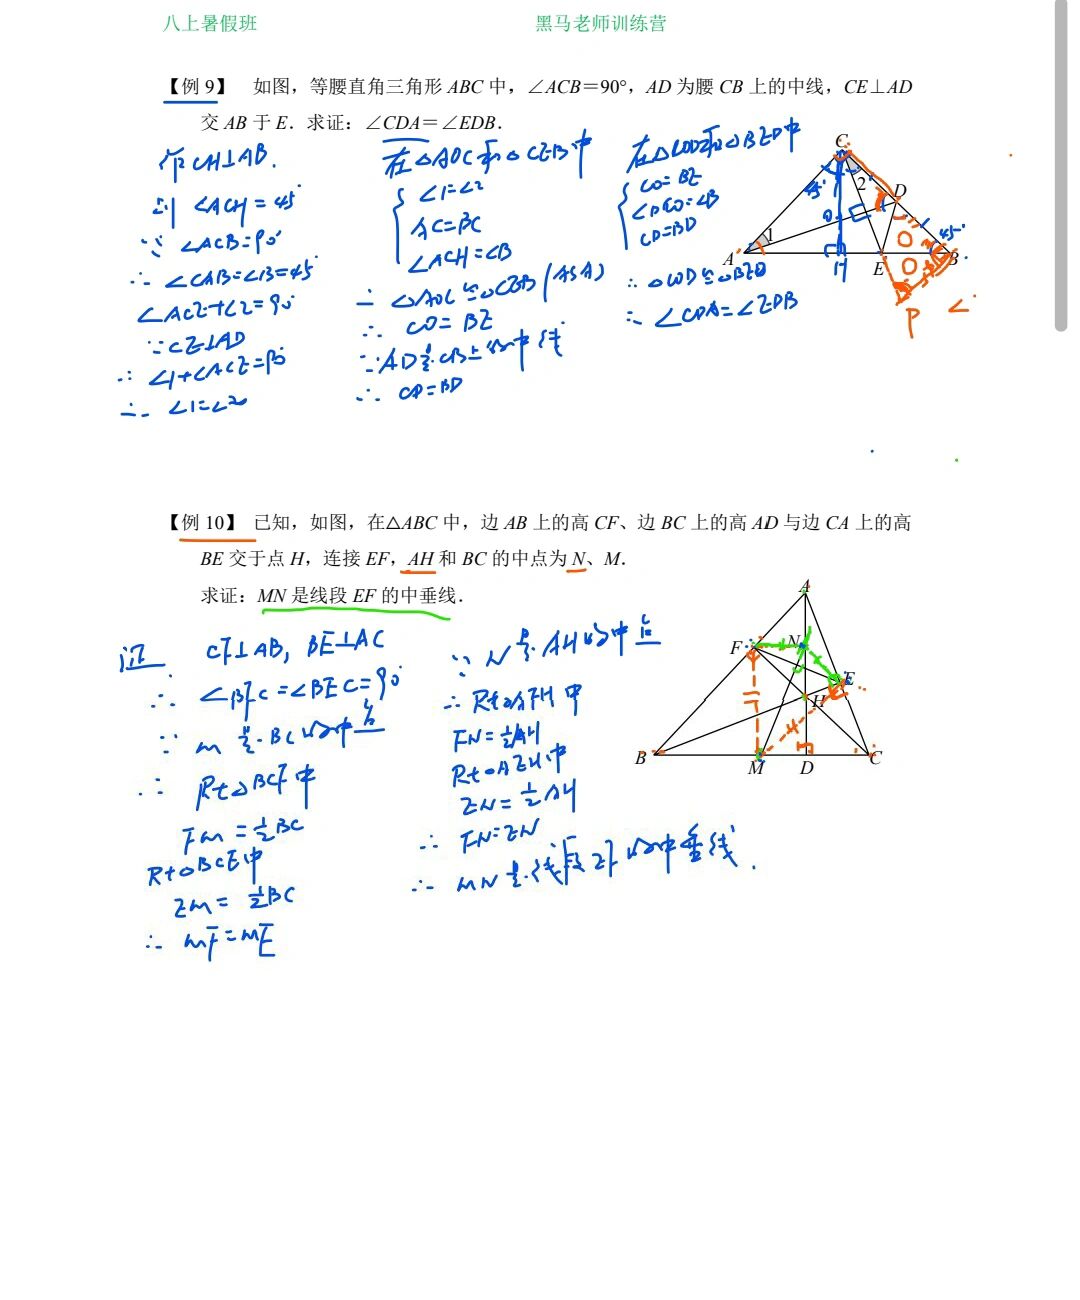 八上暑假班
黑马老师训练营
【例 9】 如图，等腰直角三角形 ABC 中，∠ACB＝90°，AD 为腰 CB 上的中线，CE⊥AD
交 AB 于 E．求证：∠CDA＝∠EDB．
作 CH⊥AB.
则 ∠ACH = 45°
∵ ∠ACB=90°
∴ ∠CAB=∠B=45°
∠ACE+∠2=90°
∵CE⊥AD
∴ ∠1+∠ACE=90°
∴ ∠1=∠2
在△AOC和△CEB中
∠1=∠2
AC=BC
∠ACH=∠B
∴ △AOC≌△CEB (ASA)
∴ CO=BE
∵AD是CB上的中线
∴ CD=BD
在△COD和△BED中
CO=BE
∠DCO=∠B
CD=BD
∴ △COD≌△BED
∴ ∠CDA=∠EDB
C
45°
2
D
O
1
45°
A
H
E
B
P
∠
【例 10】 已知，如图，在△ABC 中，边 AB 上的高 CF、边 BC 上的高 AD 与边 CA 上的高
BE 交于点 H，连接 EF，AH 和 BC 的中点为 N、M．
求证：MN 是线段 EF 的中垂线．
证 CF⊥AB, BE⊥AC
∴ ∠BFC=∠BEC=90°
∵ M是BC的中点
∴ Rt△BCF中
FM=½BC
Rt△BCE中
EM=½BC
∴ MF=ME
∵ N是AH的中点
∴ Rt△AFH中
FN=½AH
Rt△AEH中
EN=½AH
∴ FN=EN
∴ MN是线段EF的中垂线.
A
F
N
E
H
B
M
D
C